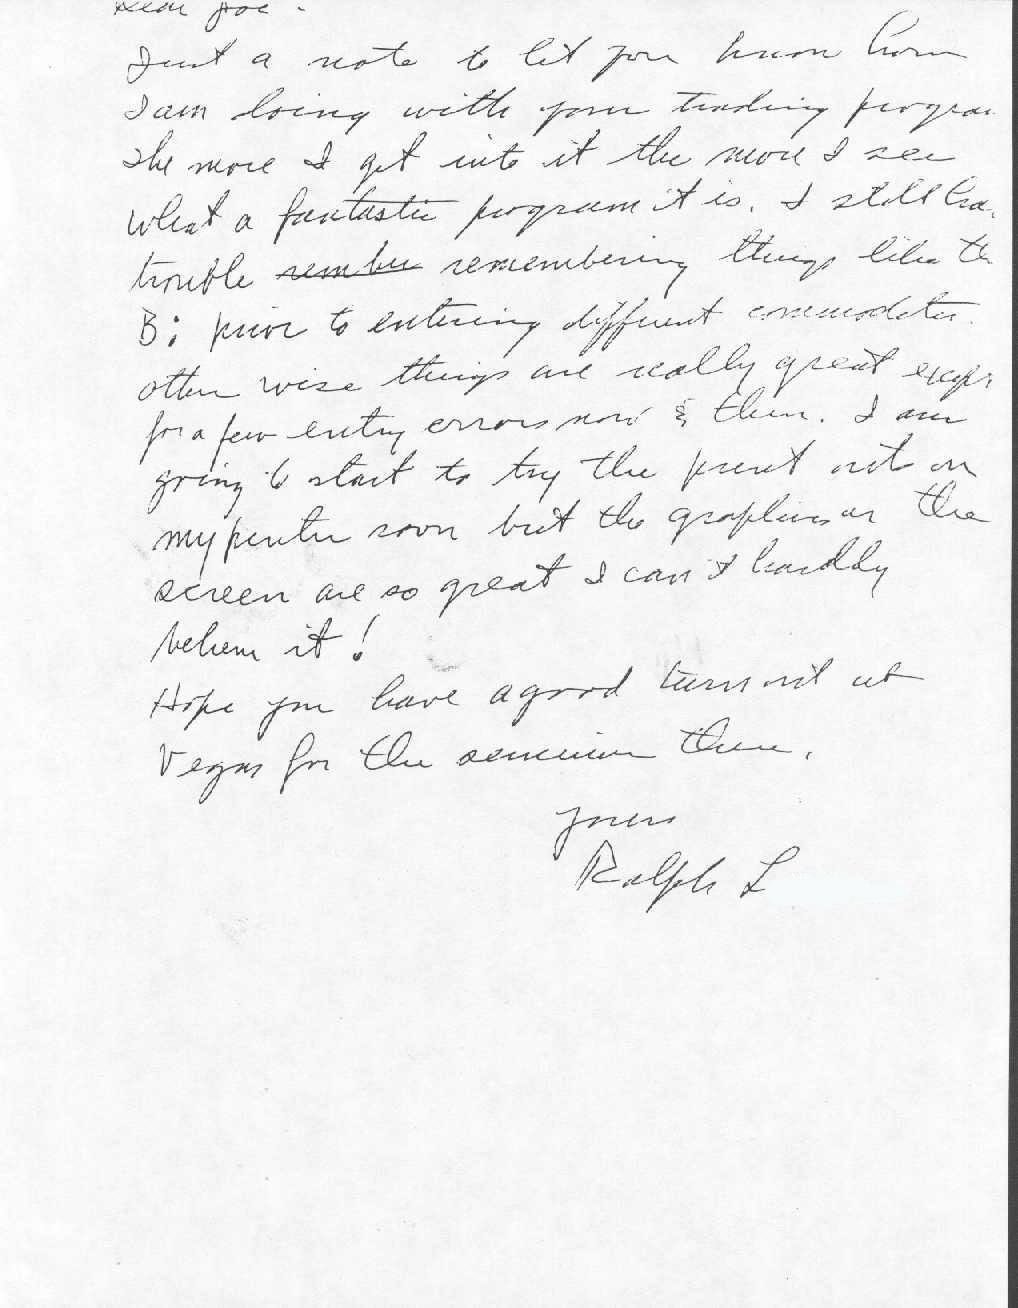 Dear Joe.
Just a note to let you know how
I am doing with your trading program
The more I get into it the more I see
what a fantastic program it is. I still ha
trouble remembering things like th
B: prior to entering different commodities.
other wise things are really great except
for a few entry errors now & then. I am
going to start to try the print out on
my printer soon but the graphics on the
screen are so great I can't hardly
believe it!
Hope you have a good turn out at
Vegas for the seminar there.
Yours
Ralph L